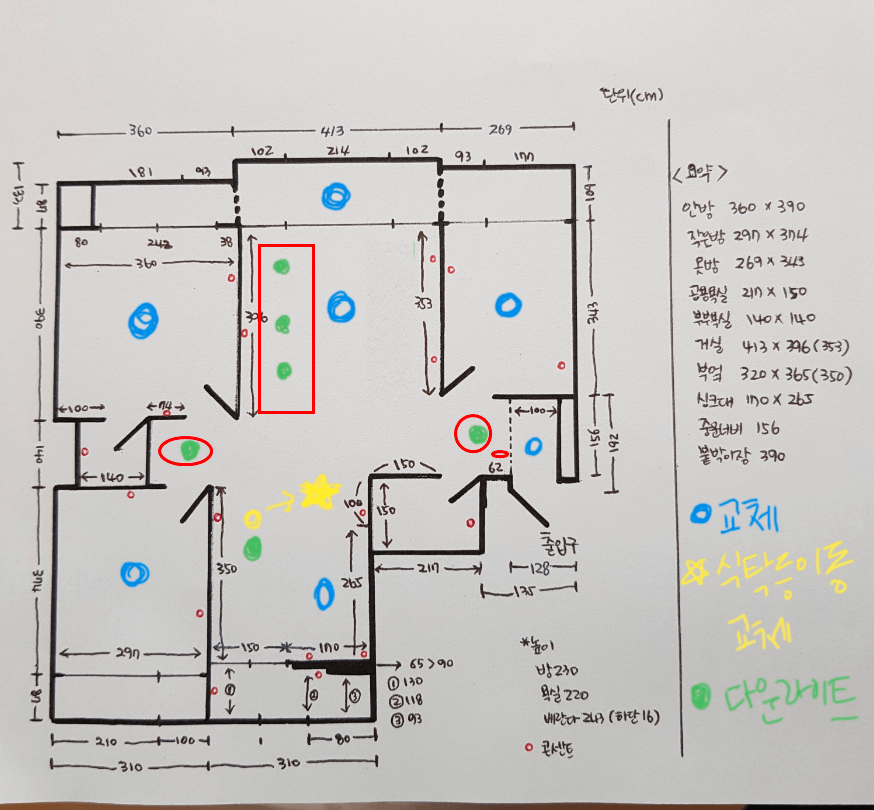 단위(cm)
360
413
269
181
93
102
214
102
93
177
137
87
109
80
242
38
360
390
396
353
343
<요약>
안방 360 × 390
작은방 297 × 374
옷방 269 × 343
공용욕실 217 × 150
부부욕실 140 × 140
거실 413 × 396 (353)
부엌 320 × 365 (350)
싱크대 170 × 265
중문너비 156
붙박이장 390
100
74
100
156
192
140
140
150
62
100
150
350
265
217
출입구
128
135
374
297
150
170
65>90
① 130
② 118
③ 93
①
②
③
87
210
100
1
80
310
310
*높이
방 230
욕실 220
베란다 243 (하단 16)
콘센트
교체
식탁등이동
교체
다운라이트